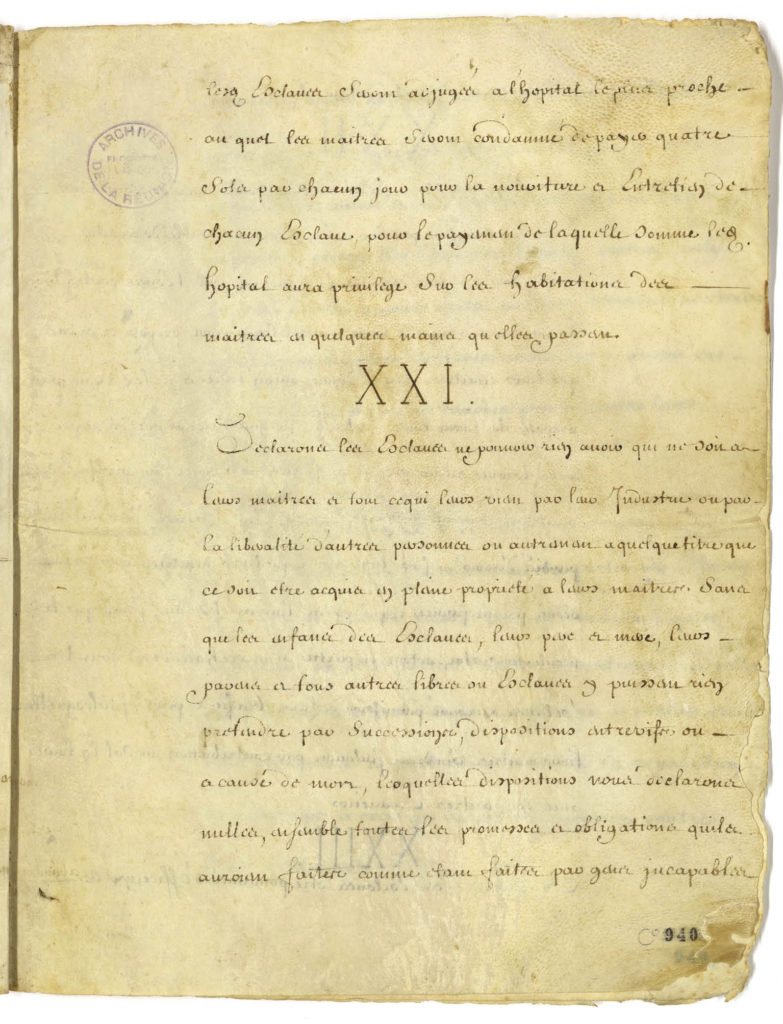 lesd. Esclaves seront adjugés a l'hopital le plus proche
au quel les maitres seront condamné de payer quatre
Sols par chacun jour pour la nouriture et Entretien de
chacun Esclave, pour le payement de laquelle somme led.
hopital aura privilege Sur les habitations des
maitres en quelques mains qu'elles passent.
XXI.
Declarons les Esclaves ne pouvoir rien avoir qui ne soit a
leurs maitres et tout ce qui leurs vient par leur Industrie ou par
la liberalité d'autres personnes ou autrement a quelque titre que
ce soit etre acquis en pleine proprieté a leurs maitres Sans
que les enfans des Esclaves, leurs pere et mere, leurs
parens et tous autres libres ou Esclaves y puissent rien
pretendre par Successions, dispositions entrevifs ou
a cause de mort, lesquelles dispositions nous declarons
nulles, ensemble toutes les promesses et obligations qu'ils
auroient faites comme etant faites par gens incapables
ARCHIVES
DE LA REUNION
940